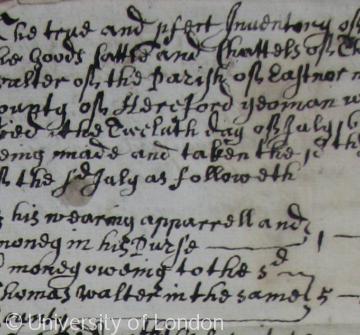 The true and pfect Inventory of
the Goods Cattle and Chattels of
walter of the Parish of Eastnor
County of Hereford yeoman
the Twelvth day of July
being made and taken the
of the sd July as followeth
his wearing apparrell and
money in his Purse 1
money oweing to the sd
Thomas walter in the same 5
© University of London